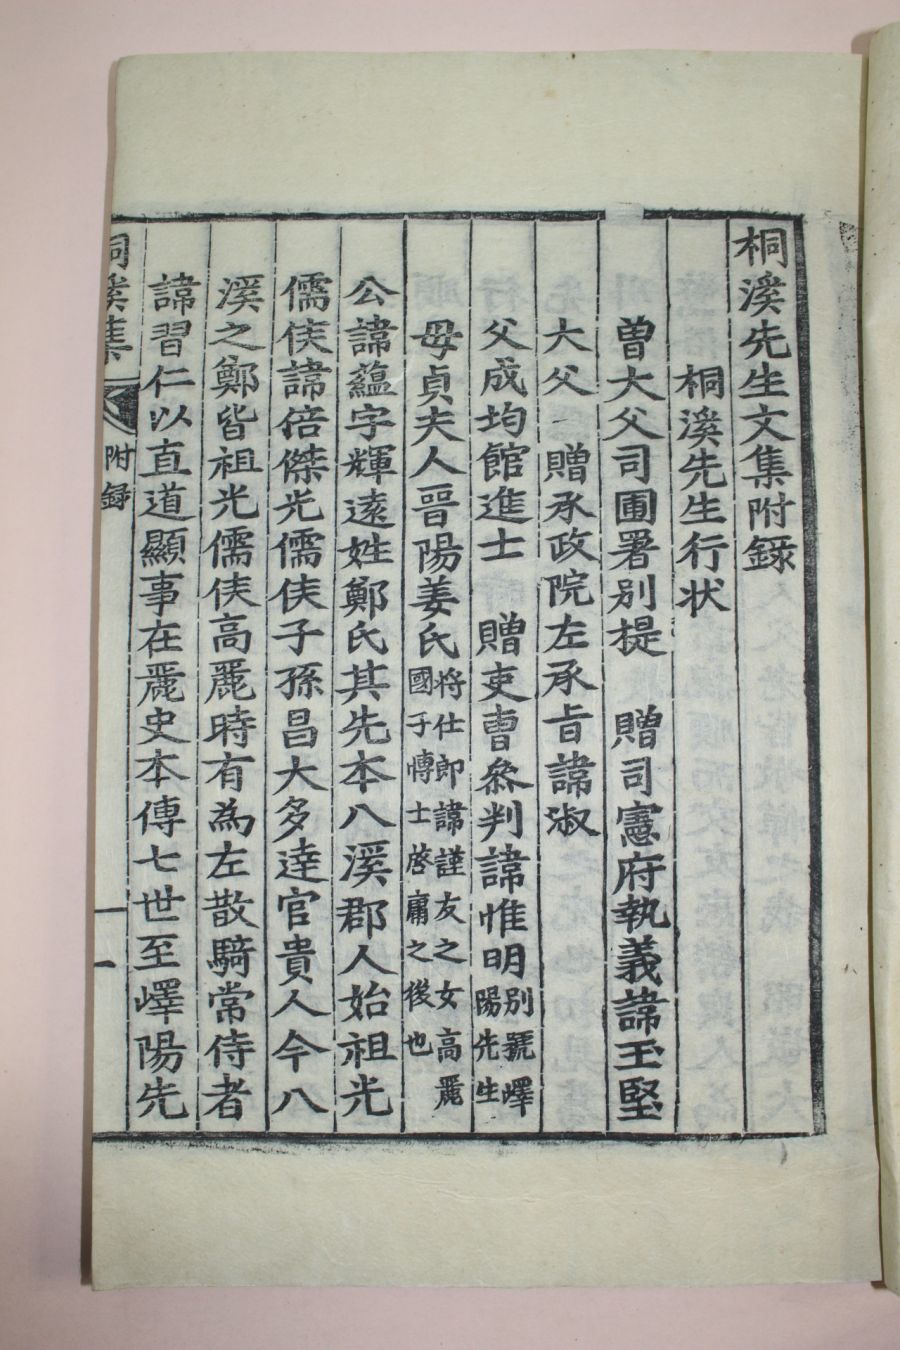 桐溪先生文集附錄
桐溪先生行狀
曾大父司圃署別提　贈司憲府執義諱玉堅
大父　贈承政院左承旨諱淑
父成均館進士　贈吏曹叅判諱惟明別號嶧陽先生
母貞夫人晋陽姜氏將仕郞諱謹友之女高麗國子博士啓庸之後也
公諱蘊字輝遠姓鄭氏其先本八溪郡人始祖光
儒侯諱倍傑光儒侯子孫昌大多達官貴人今八
溪之鄭皆祖光儒侯高麗時有為左散騎常侍者
諱習仁以直道顯事在麗史本傳七世至嶧陽先
桐溪集　附錄　一